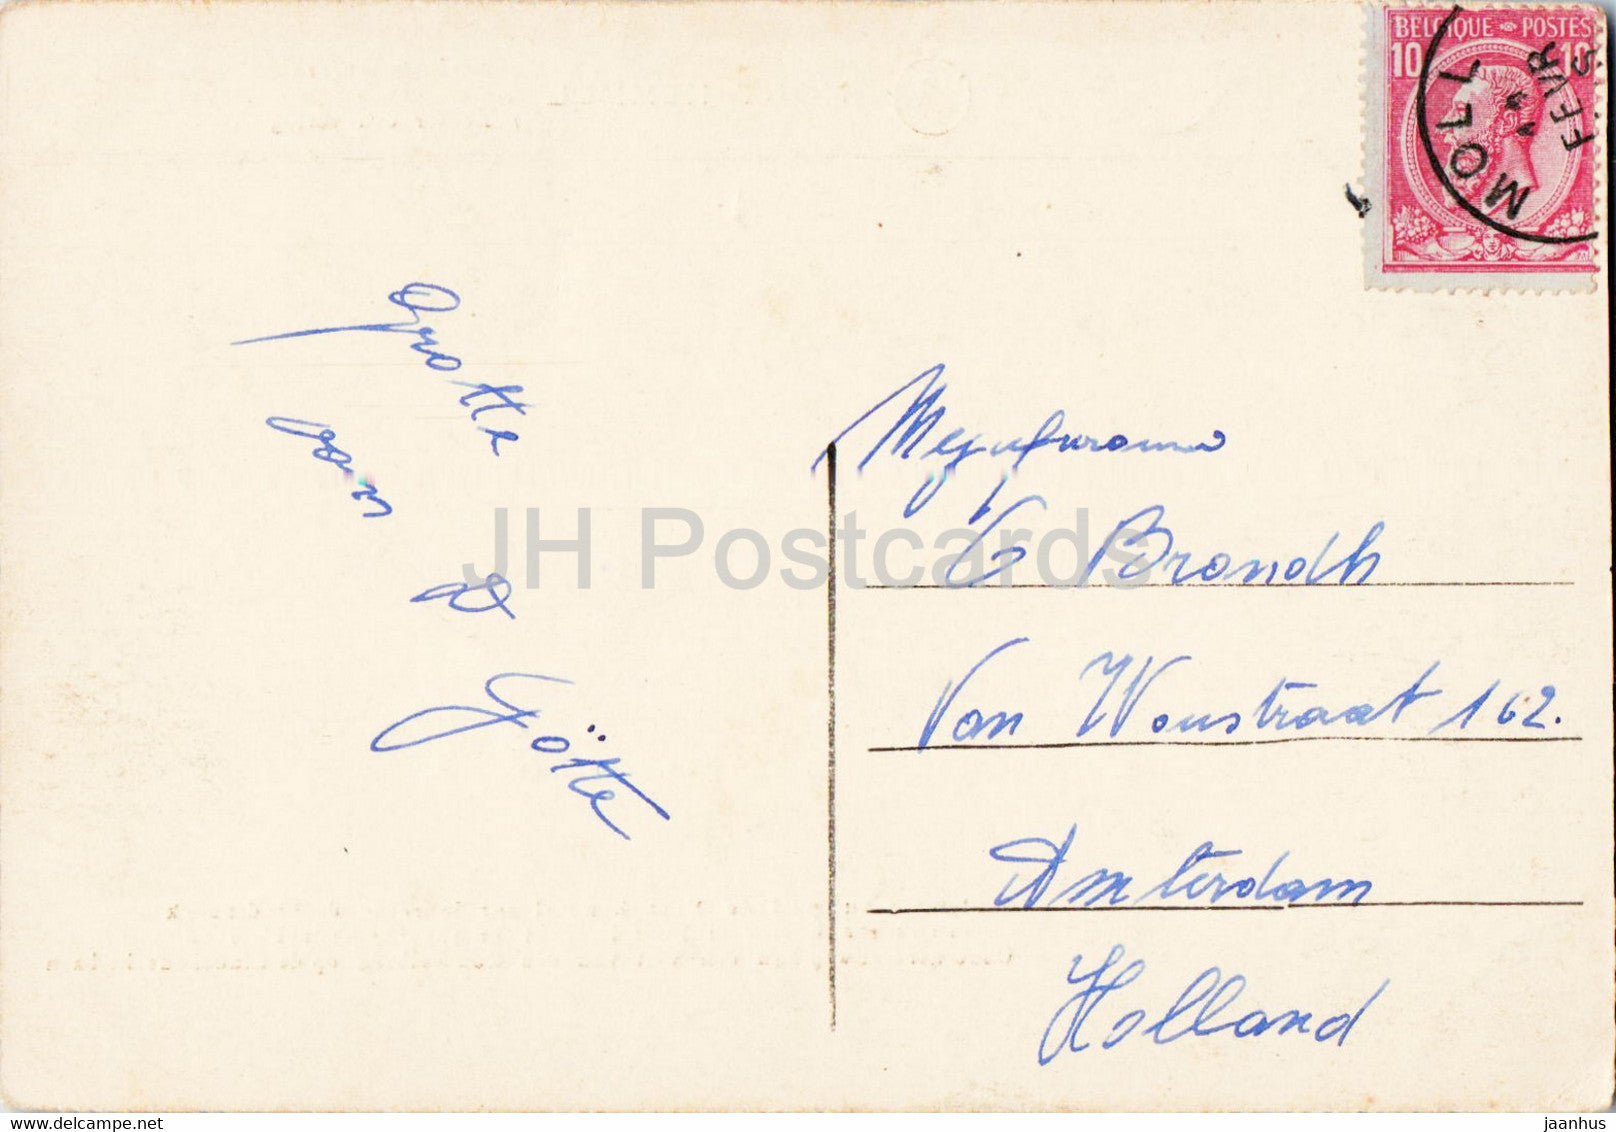 BELGIQUE POSTES
10 10
MOLL
FEVR
Grotte
van
D
Götte
Mejufvrouw
C Brandh
Van Woustraat 162.
Amsterdam
Holland
JH Postcards
delcampe.net
jaanhus